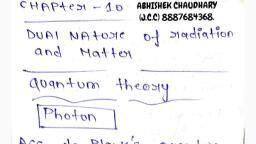 CHAPter - 10
ABHISHEK CHAUDHARY
(W.C.C) 8887684368.
DUAl NAtore of radiation
and Matter
Quantum theory
Photon